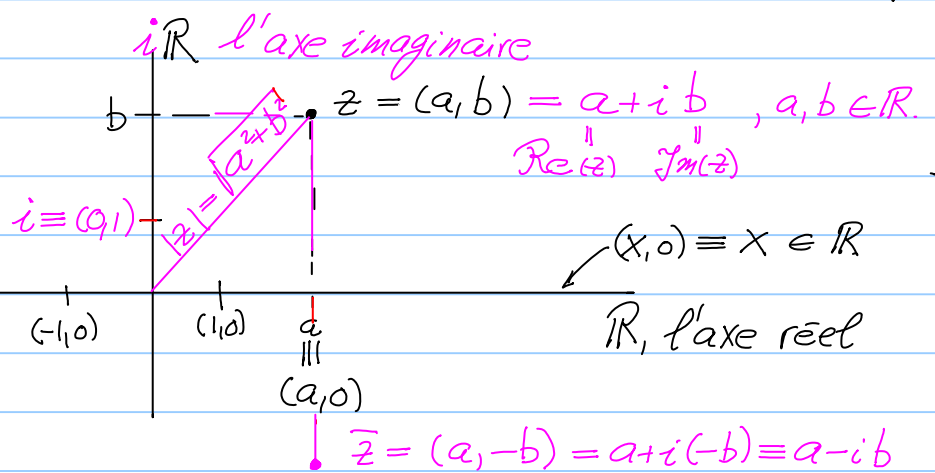 iℝ l'axe imaginaire
b z = (a,b) = a+ib , a,b ∈ ℝ.
|z| = √a²+b²
= =
Re(z) Im(z)
i ≡ (0,1)
(x,0) ≡ x ∈ ℝ
(-1,0) (1,0) a ℝ, l'axe réel
≡
(a,0)
z̅ = (a,-b) = a+i(-b) ≡ a-ib